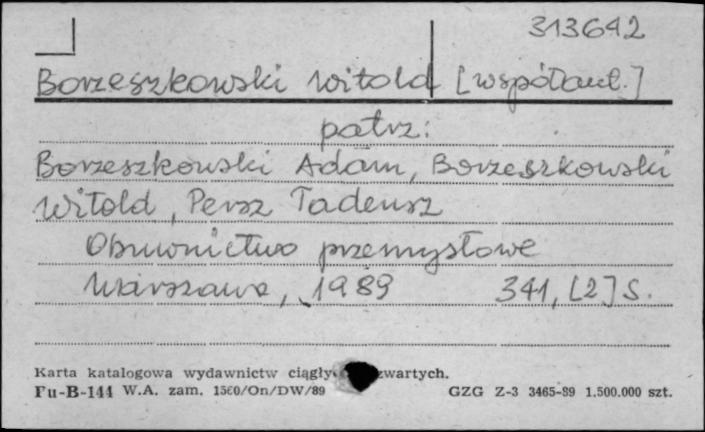 313642
Borzeszkowski Witold [współaut.]
patrz:
Borzeszkowski Adam, Borzeszkowski
Witold, Persz Tadeusz
Obuwnictwo przemysłowe
Warszawa, 1989 341, [2] s.
Karta katalogowa wydawnictw
Fu-B-144 W.A. zam. 1560/On/DW/89 GZG Z-3 3465-89 1.500.000 szt.